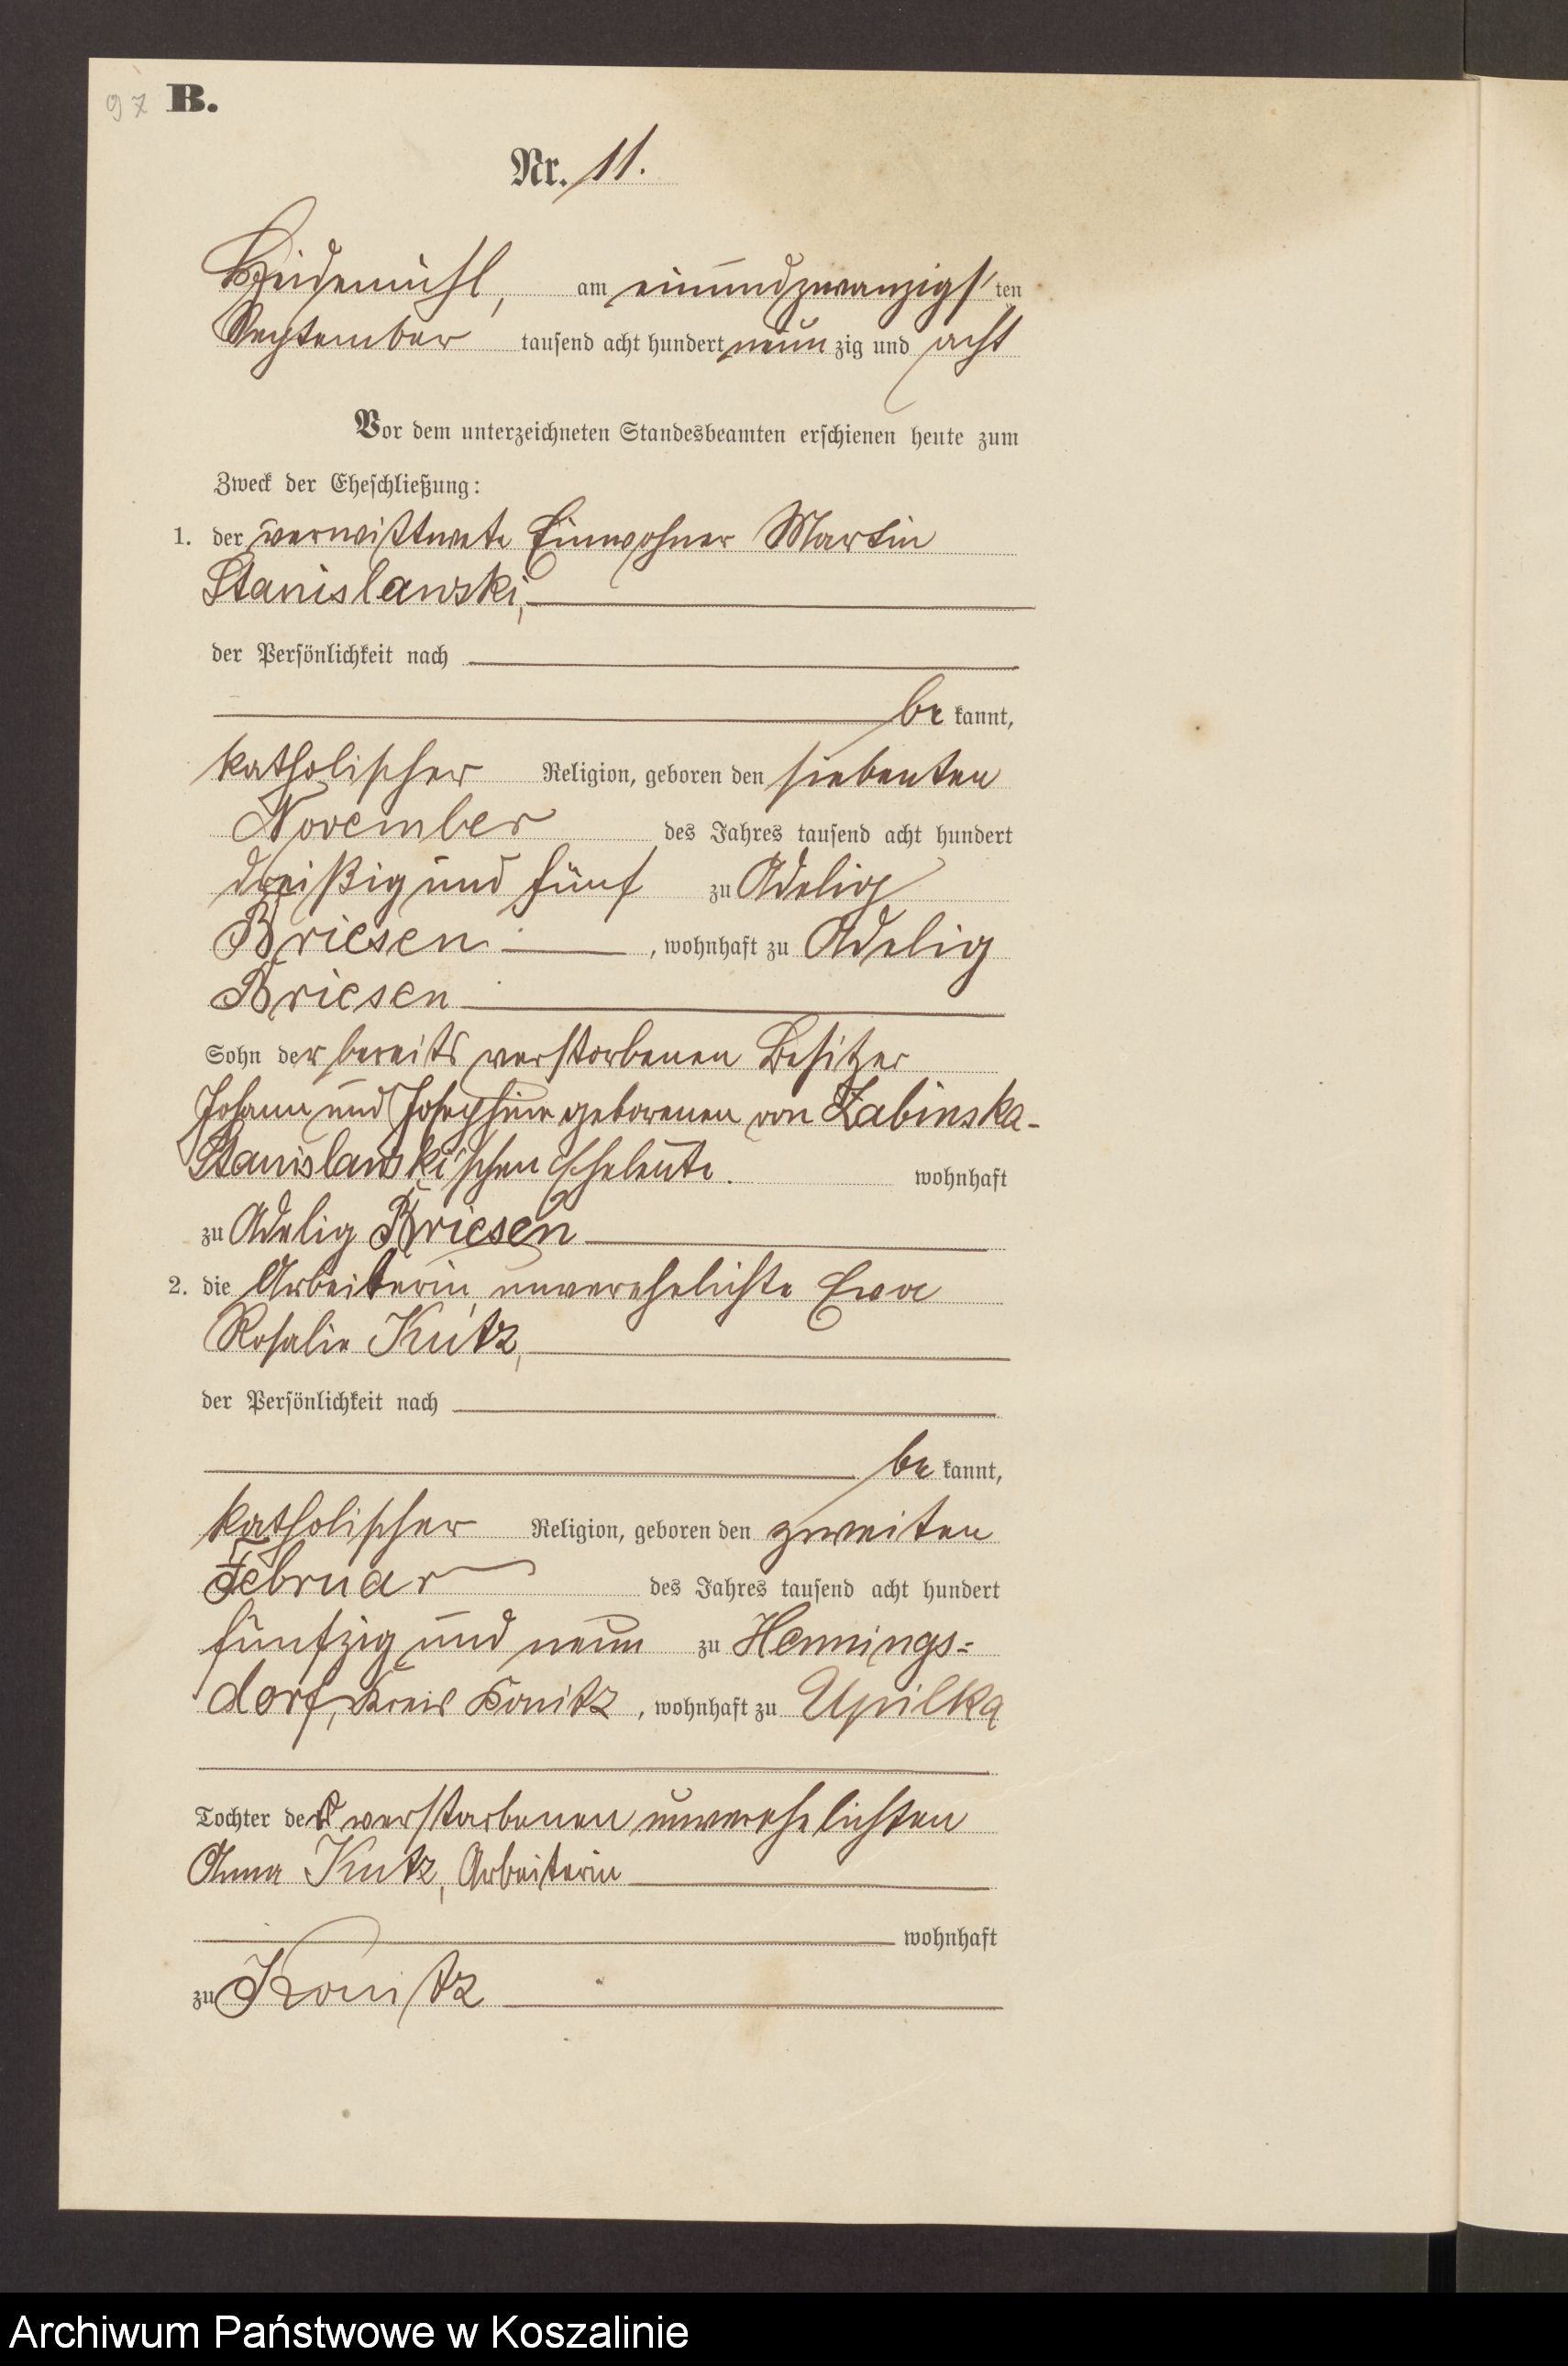 97 B.
Nr. 11.
Heidemühl, am einundzwanzigsten
September tausend acht hundert neunzig und acht
Vor dem unterzeichneten Standesbeamten erschienen heute zum
Zweck der Eheschließung:
1. der verwittwete Einwohner Martin
Stanislawski,
der Persönlichkeit nach
bekannt,
katholischer Religion, geboren den siebenten
November des Jahres tausend acht hundert
dreißig und fünf zu Adelig
Briesen, wohnhaft zu Adelig
Briesen
Sohn der bereits verstorbenen Besitzer
Johann und Josephine geborenen von Zabinska-
Stanislawski'schen Eheleute. wohnhaft
zu Adelig Briesen
2. die Arbeiterin, unverehelichte Eva
Rosalie Kutz,
der Persönlichkeit nach
bekannt,
katholischer Religion, geboren den zweiten
Februar des Jahres tausend acht hundert
fünfzig und neun zu Hennings=
dorf, Kreis Konitz, wohnhaft zu Upilka
Tochter der verstorbenen unverehelichten
Anna Kutz, Arbeiterin
wohnhaft
zu Konitz
Archiwum Państwowe w Koszalinie